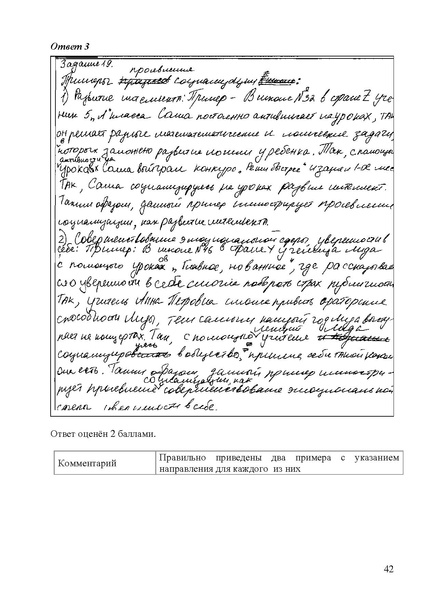 Ответ 3
Задание 19.
проявления
Примеры социализации :
1) Развитие интеллекта: Пример - В школе №32 в стране Z уче-
ник 5 „А" класса Саша постоянно активничает на уроках, там
он решает разные математические и логические задачи,
в которых заложено развитие логики у ребенка. Так, с помощью
активности на
уроках Саша выиграл конкурс „Реши быстрее" и занял 1-ое место
Так, Саша социализируясь на уроках развил интеллект.
Таким образом, данный пример иллюстрирует проявление
социализации, как развитие интеллекта.
2) Совершенствование эмоциональной сферы, уверенности в
себе: Пример: В школе №76 в стране Y ученица Лида
с помощью уроков „Главное, не главное", где рассказывали
об уверенности в себе смогла побороть страх публичности
Так, учитель Анна Петровна смогла привить ораторские
способности Лиды, тем самым каждый год Лида высту-
пает на концертах. Так, с помощью учителя Лида
социализируясь в общество, приняла себя такой какая
она есть. Таким образом, данный пример иллюстри-
социализации, как
рует проявление совершенствование эмоциональной
уверенности в себе.
Ответ оценён 2 баллами.
Комментарий
Правильно приведены два примера с указанием
направления для каждого из них
42